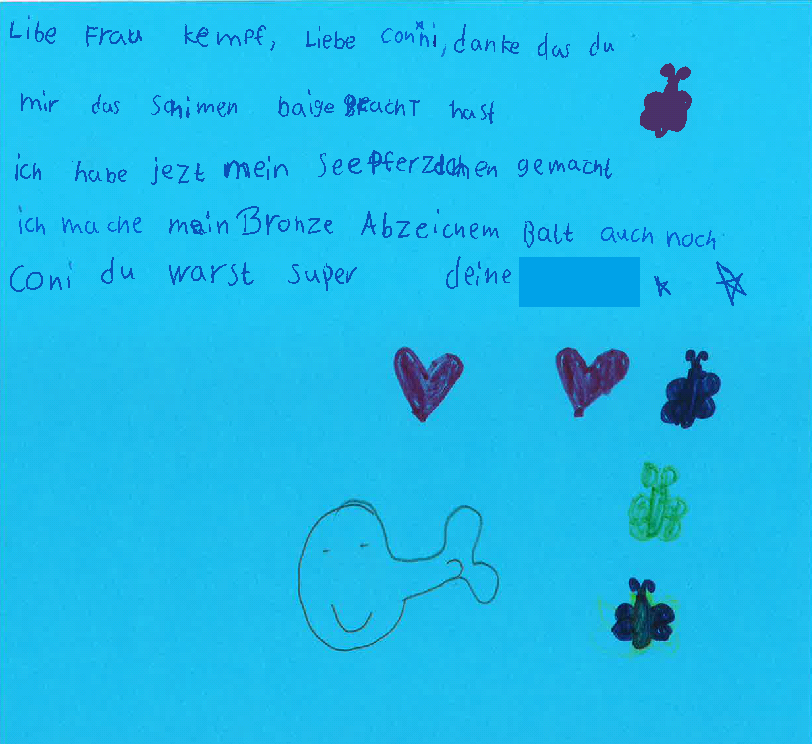 Libe Frau kempf, Liebe Conni, danke das du
mir das Schimen baigebracht hast
ich habe jezt mein SeePferzchen gemacht
ich mache mein Bronze Abzeichem Balt auch noch
Coni du warst super deine